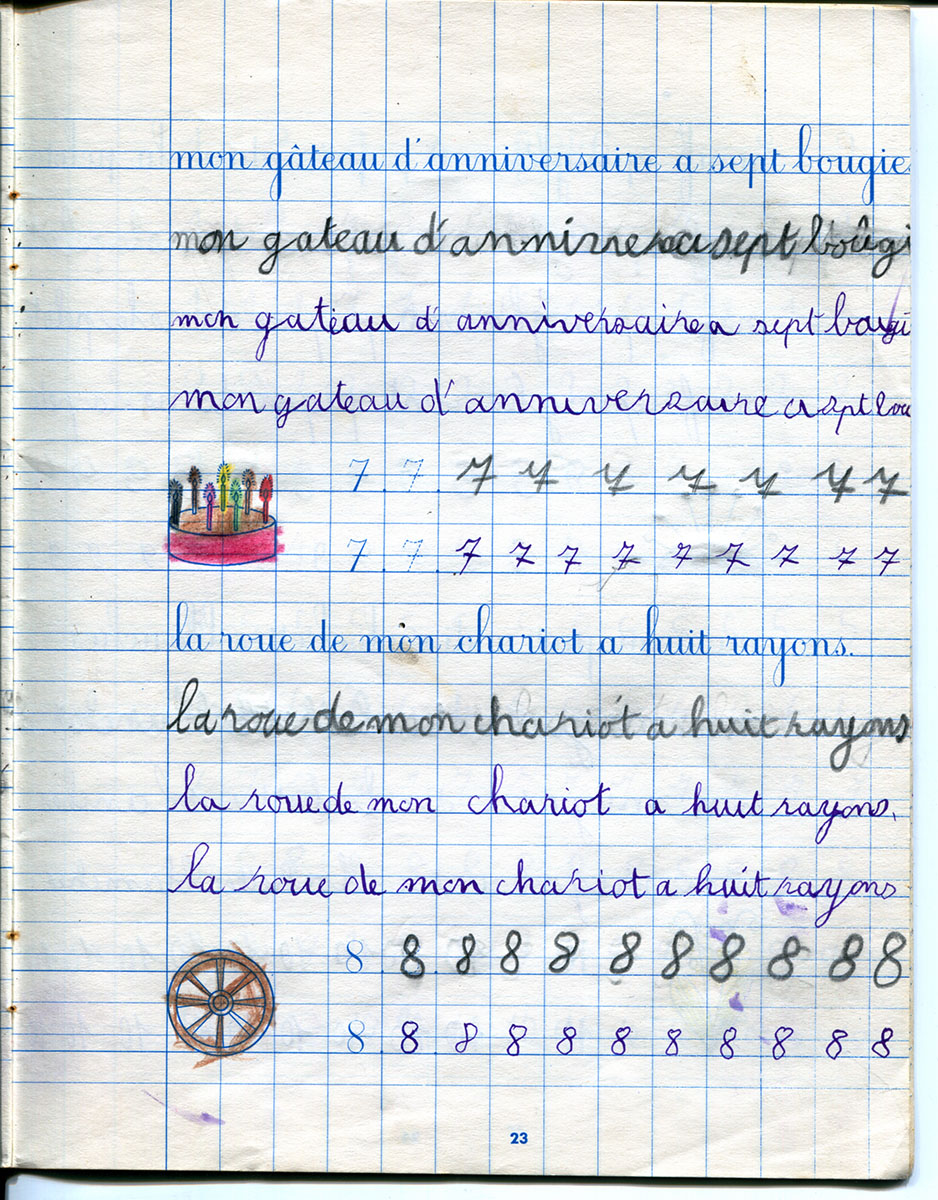 mon gâteau d'anniversaire a sept bougie
mon gateau d'annirre sept boûgi
mon gateau d' anniversaire a sept bougi
mon gateau d' anniversaire a spt bou
7 7 7 7 7 7 7 7 7 7
7 7 7 7 7 7 7 7 7 7 7
la roue de mon chariot a huit rayons.
la roue de mon chariot a huit rayons
la roue de mon chariot a huit rayons.
la roue de mon chariot a huit rayons
8 8 8 8 8 8 8 8 8 8 8
8 8 8 8 8 8 8 8 8 8 8
23